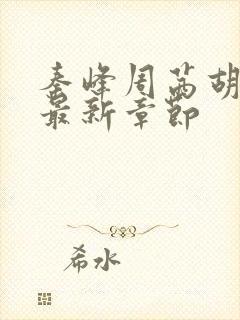 秦峰周茜胡
最新章节
希水